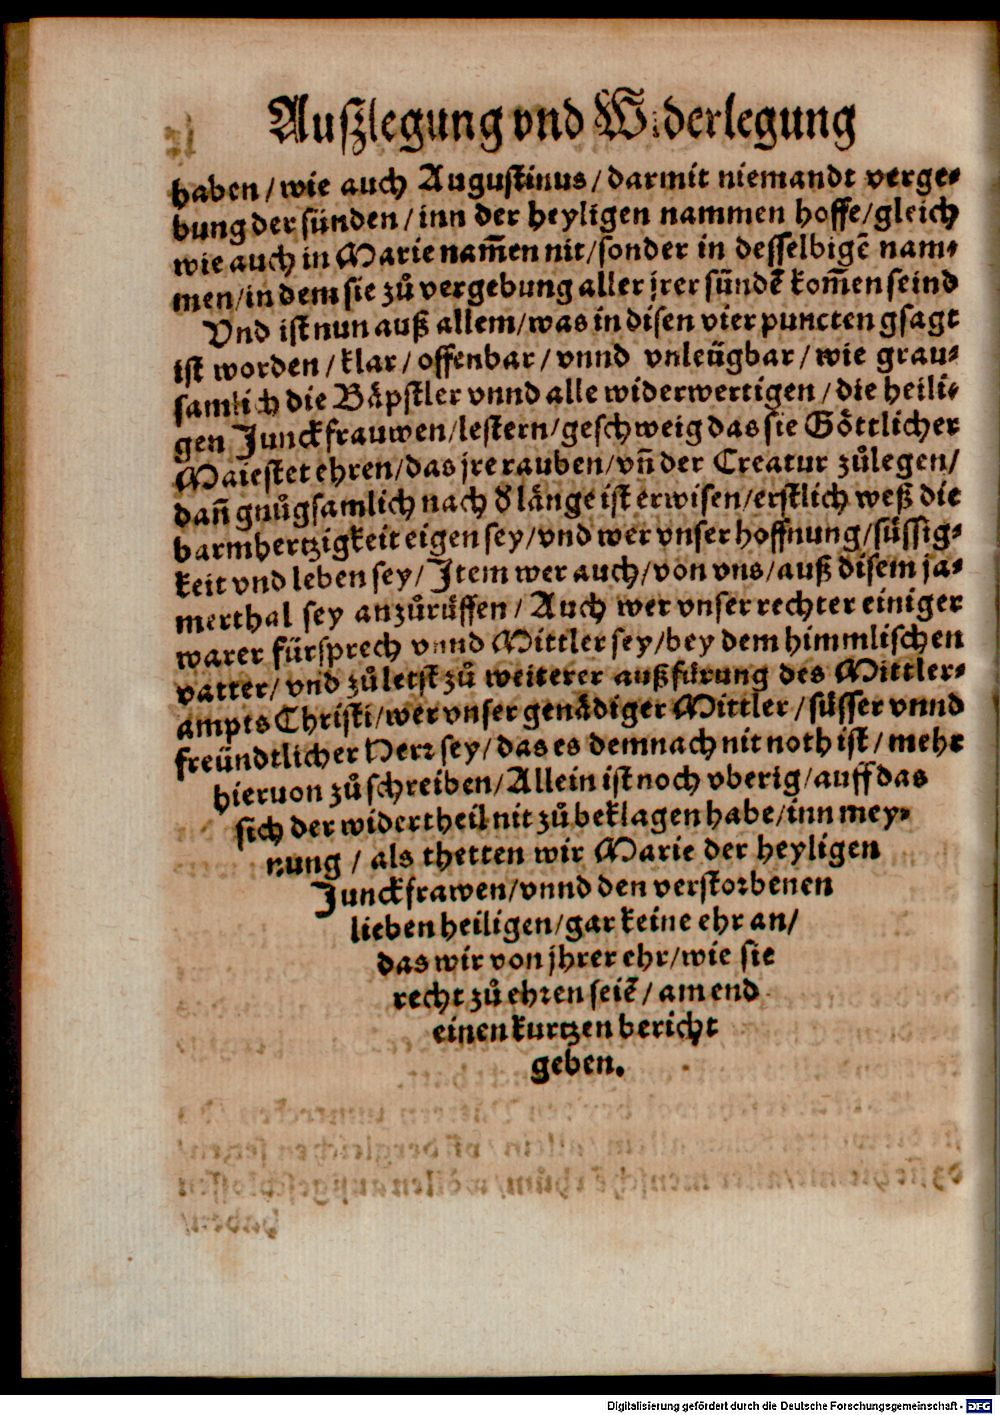 Außlegung vnd Widerlegung
haben / wie auch Augustinus / darmit niemandt verge-
bung der sünden / inn der heyligen nammen hoffe / gleich
wie auch in Marie nam̃en nit / sonder in desselbigẽ nam-
men / in dem sie zů vergebung aller jrer sündẽ kom̃en seind
Vnd ist nun auß allem / was in disen vier puncten gsagt
ist worden / klar / offenbar / vnnd vnleügbar / wie grau-
samlich die Bäpstler vnnd alle widerwertigen / die heili-
gen Junckfrauwen / lestern / geschweig das sie Göttlicher
Maiestet ehren / das jre rauben / vñ der Creatur zůlegen /
dañ gnůgsamlich nach d' länge ist erwisen / erstlich weß die
barmhertzigkeit eigen sey / vnd wer vnser hoffnung / süssig-
keit vnd leben sey / Item wer auch / von vns / auß disem ja-
merthal sey anzůrůffen / Auch wer vnser rechter einiger
warer fürsprech vnnd Mittler sey / bey dem himmlischen
vatter / vnd zůletst zů weiterer außfürung des Mittler-
ampts Christi / wer vnser genädiger Mittler / süsser vnnd
freündtlicher Herr sey / das es demnach nit noth ist / mehr
hieruon zů schreiben / Allein ist noch vberig / auff das
sich der widertheil nit zů beklagen habe / inn mey-
nung / als thetten wir Marie der heyligen
Junckfrawen / vnnd den verstorbenen
lieben heiligen / gar keine ehr an /
das wir von jhrer ehr / wie sie
recht zů ehren seiẽ / am end
einen kurtzen bericht
geben.
Digitalisierung gefördert durch die Deutsche Forschungsgemeinschaft - DFG